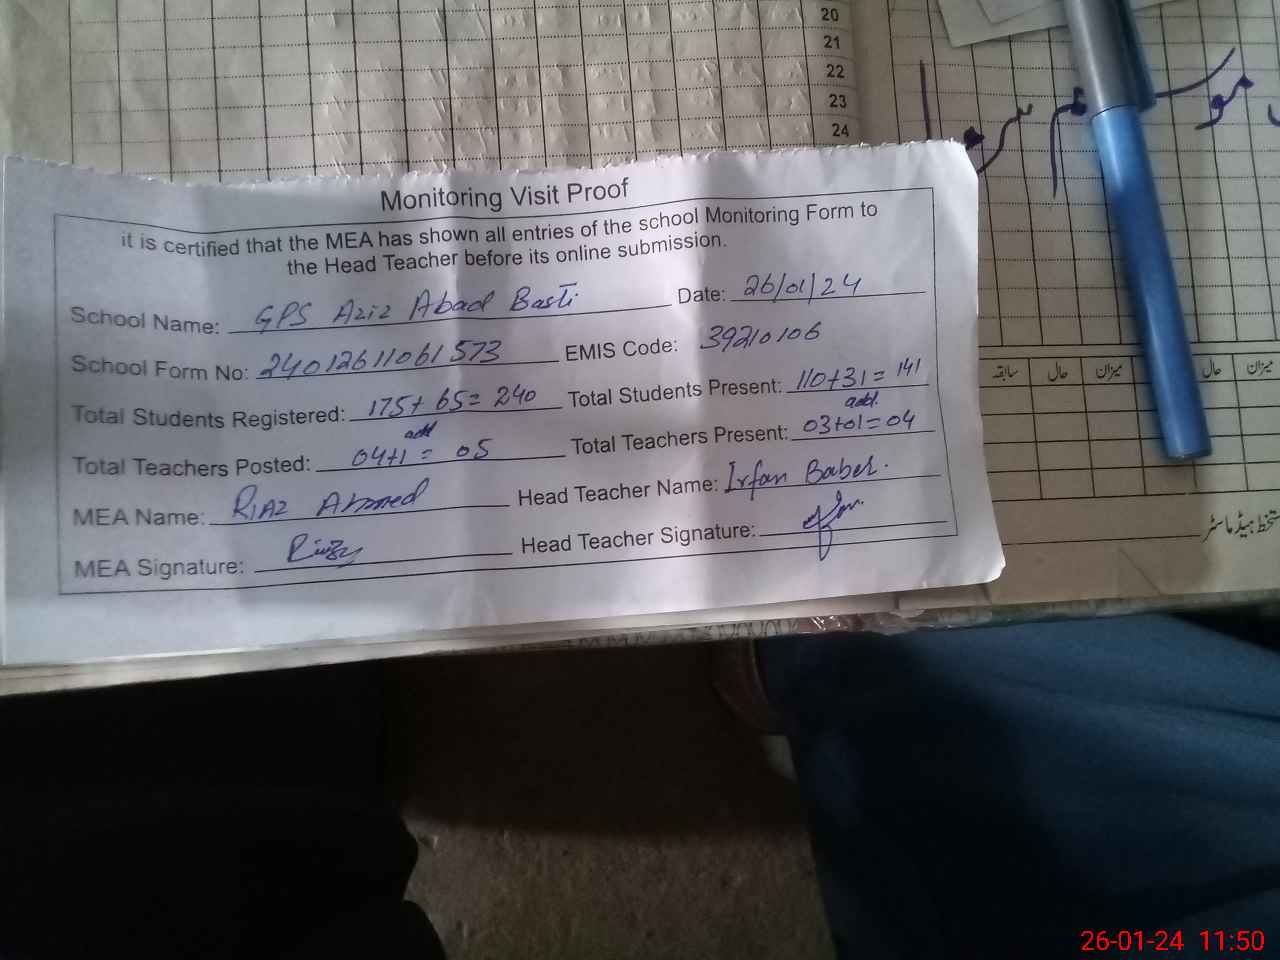 20
21
22
23
24
موسم سرما
Monitoring Visit Proof
it is certified that the MEA has shown all entries of the school Monitoring Form to
the Head Teacher before its online submission.
School Name: GPS Aziz Abad Basti Date: 26/01/24
School Form No: 24012611061573 EMIS Code: 39210106
Total Students Registered: 175+65=240 Total Students Present: 110+31=141
add add
Total Teachers Posted: 04+1=05 Total Teachers Present: 03+01=04
MEA Name: RIAZ Ahmed Head Teacher Name: Irfan Baber.
MEA Signature: Head Teacher Signature:
سابقہ حال میزان حال میزان
دستخط ہیڈ ماسٹر
26-01-24 11:50